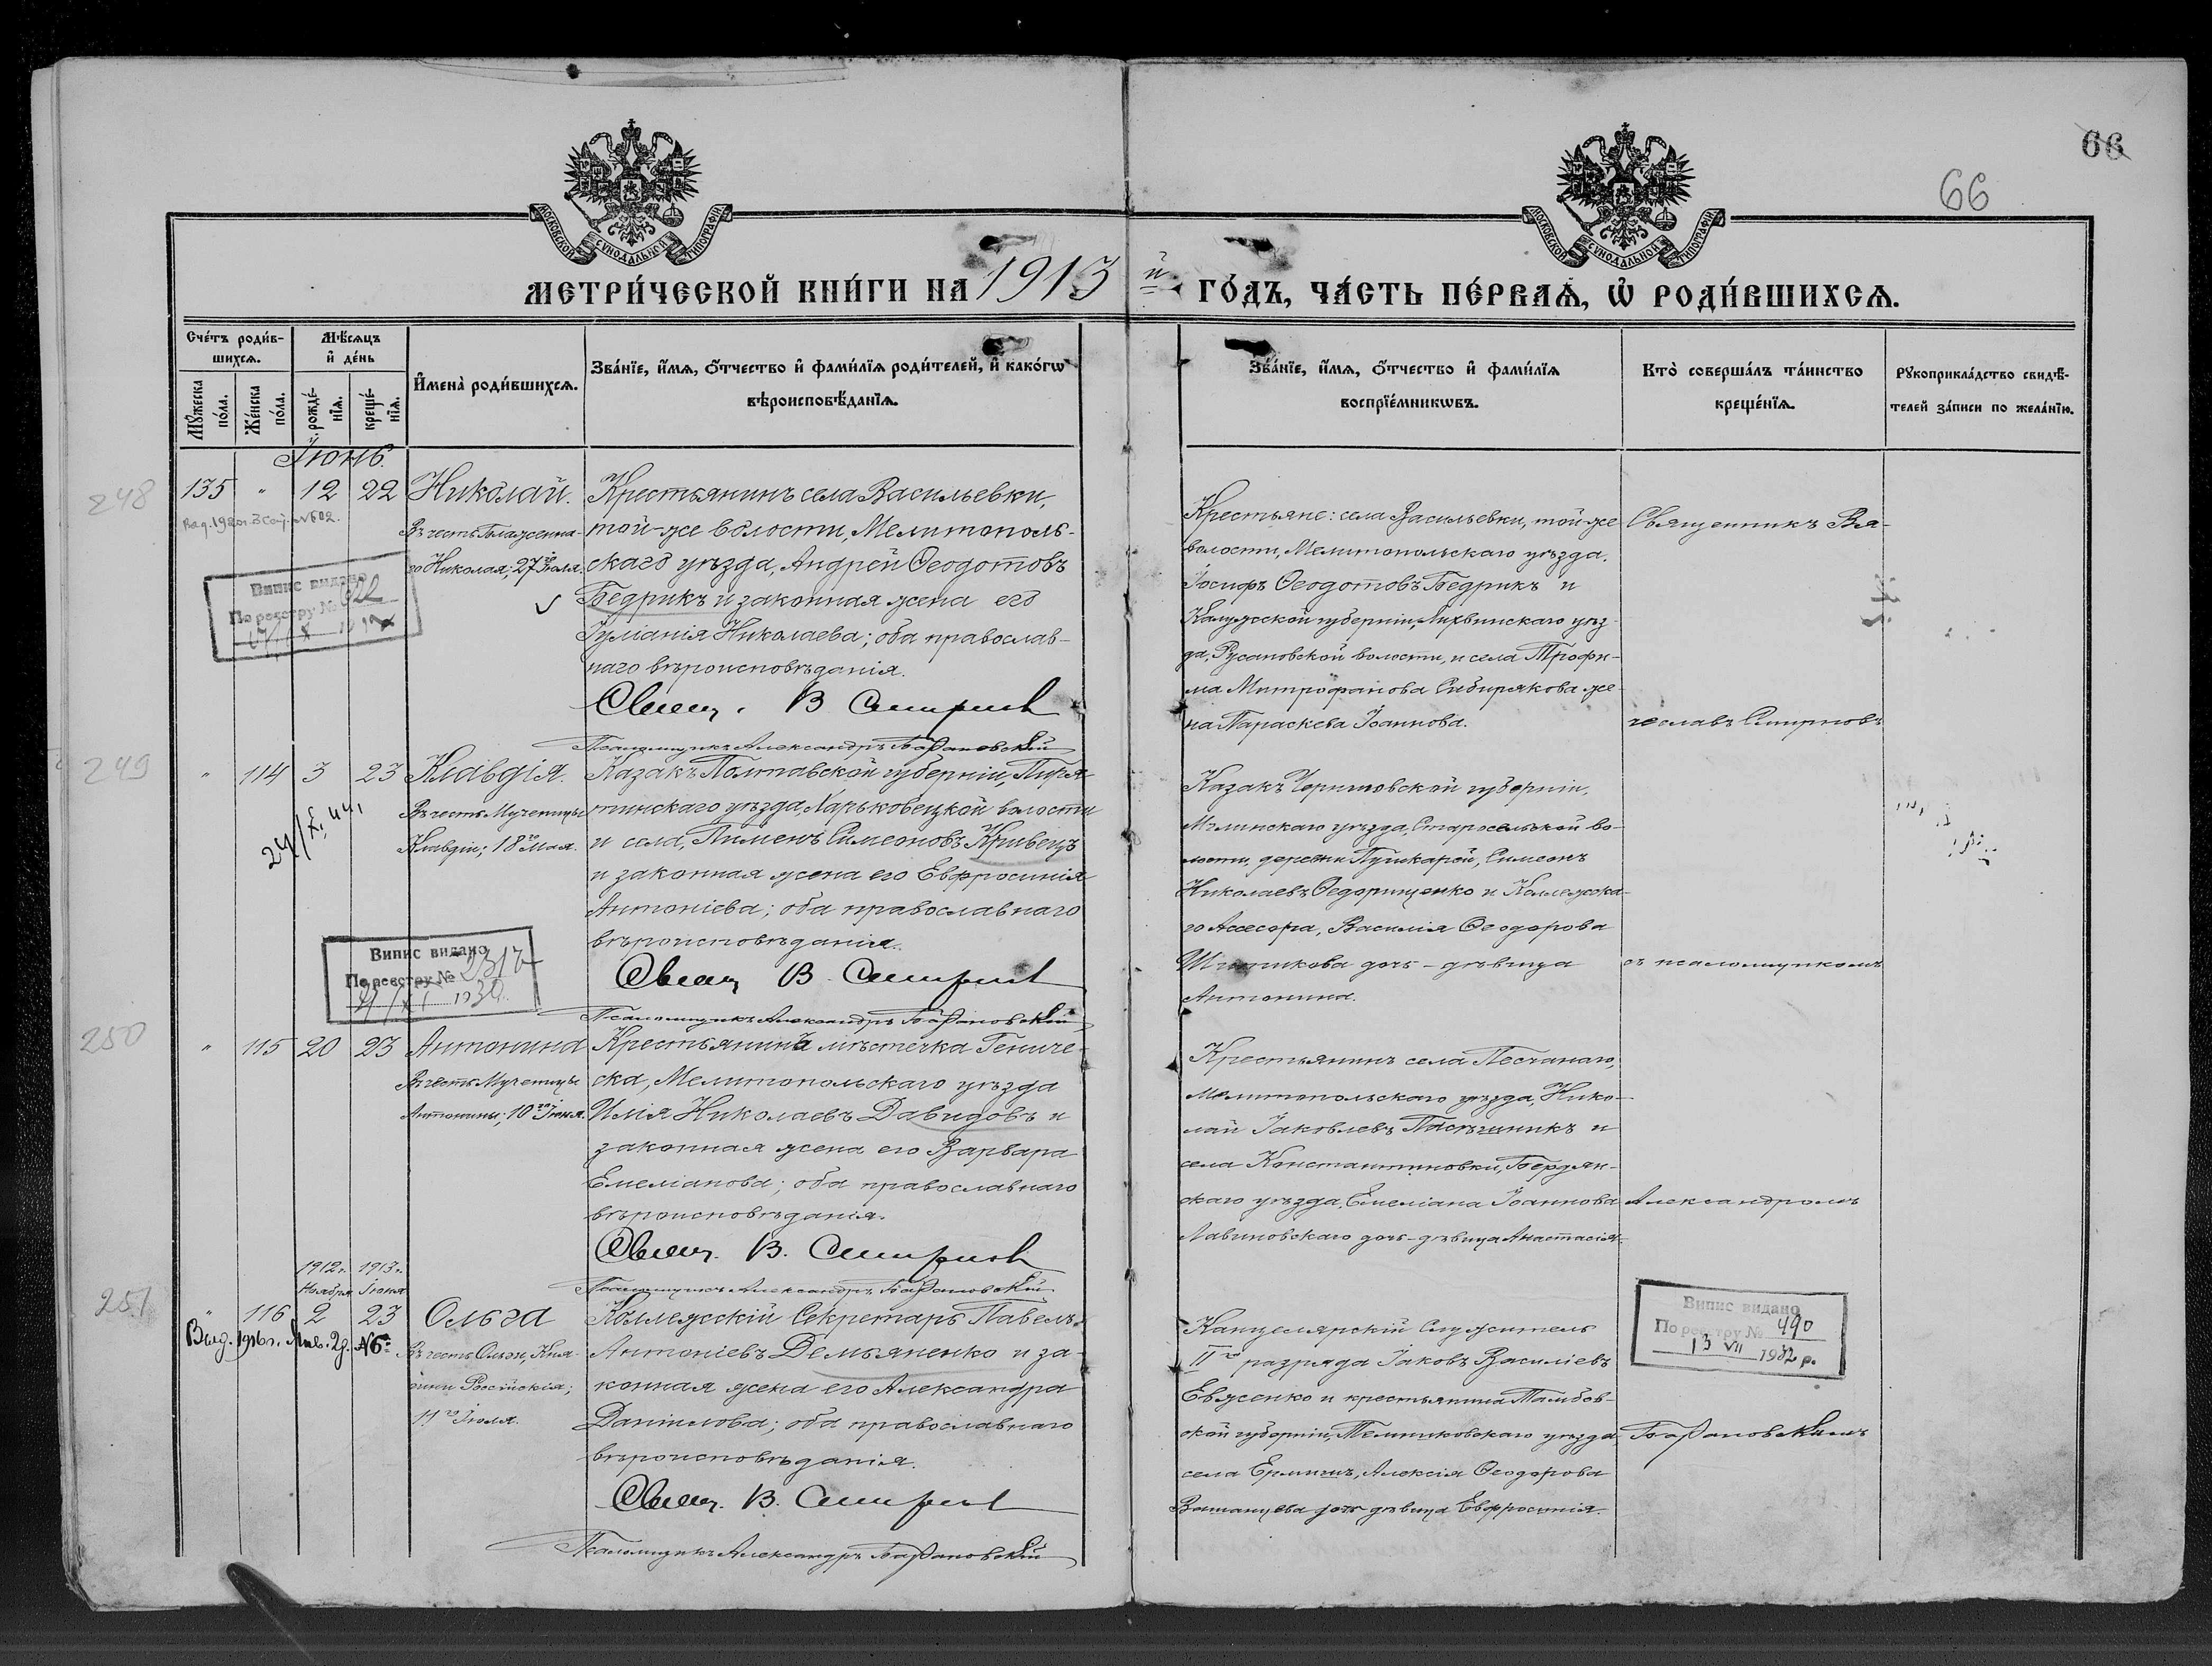 66
66
МОСКОВСКОЙ СУНОДАЛЬНОЙ ТИПОГРАФІИ
МОСКОВСКОЙ СУНОДАЛЬНОЙ ТИПОГРАФІИ
МЕТРИ́ЧЕСКОЙ КНИ́ГИ НА 1913 й ГО́ДЪ, ЧА́СТЬ ПЕ́РВАѦ, Ѡ҆ РОДИ́ВШИХСѦ.
Сче́тъ роди́в-
шихсѧ.
Мꙋжеска
по́ла.
Же́нска
по́ла.
Мѣ́сѧцъ
и҆ де́нь
рожде́-
нїѧ.
креще́-
нїѧ.
И҆мена̀ роди́вшихсѧ.
Зва́нїе, и҆́мѧ, ѻ҆́тчество и҆ фами́лїѧ роди́телей, и҆ како́гѡ
вѣроисповѣ́данїѧ.
Зва́нїе, и҆́мѧ, ѻ҆́тчество и҆ фами́лїѧ
воспрїе́мникѡвъ.
Кто̀ соверша́лъ та́инство
креще́нїѧ.
Рꙋкоприкла́дство свидѣ́-
телей за́писи по жела́нїю.
Іюнь.
248
135 " 12 22 Николай.
Въ честь Блаженна-
го Николая; 27го Іюля.
Випис видано
По реєстру № 922
Крестьянинъ села Васильевки,
той-же волости, Мелитополь-
скаго уѣзда, Андрей Ѳеодотовъ
Бедрикъ и законная жена его
Іуліанія Николаева; оба православ-
наго вѣроисповѣданія.
Свящ. В Смирновъ
Псаломщикъ Александръ Барановскій
Крестьяне: села Васильевки, той-же
волости, Мелитопольскаго уѣзда.
Іосифъ Ѳеодотовъ Бедрикъ и
Калужской губерніи, Лихвинскаго уѣз-
да, Русановской волости, и села Трофи-
ма Митрофанова Сибирякова же-
на Параскева Іоаннова.
Священникъ Вя-
чеславъ Смирновъ
249
" 114 3 23 Клавдія.
Въ честь Мученицы
Клавдіи; 18го Мая.
Випис видано
По реєстру № 2317
1930
Казакъ Полтавской губерніи, Пиря-
тинскаго уѣзда, Харьковецкой волости
и села, Пименъ Симеоновъ Кривецъ
и законная жена его Евфросинія
Антоніева; оба православнаго
вѣроисповѣданія.
Свящ В. Смирновъ
Псаломщикъ Александръ Барановскій
Казакъ Черниговской губерніи,
Мглинскаго уѣзда, Старосельской во-
лости, деревни Пушкарей, Симеонъ
Николаевъ Ѳедорищенко и Коллежска-
го Ассесора, Василія Ѳеодорова
дочь - дѣвица
Антонина.
съ псаломщикомъ
250
" 115 20 23 Антонина
Въ честь Мученицы
Антонины; 10го Іюня.
Крестьянинъ мѣстечка Гениче-
ска, Мелитопольскаго уѣзда
Илія Николаевъ Давидовъ и
законная жена его Варвара
Емеліанова; оба православнаго
вѣроисповѣданія.
Свящ. В. Смирновъ
Псаломщикъ Александръ Барановскій
Крестьянинъ села Песчанаго,
Мелитопольскаго уѣзда, Нико-
лай Іаковлевъ Пасѣчникъ и
села Константиновки, Бердян-
скаго уѣзда, Емеліана Іоаннова
Лавиновскаго дочь - дѣвица Анастасія.
Александромъ
1912г. 1913г.
Ноября Іюня
251
" 116 2 23 Ольга
Выд. 1916г. Янв. 2д. №6
Въ честь Ольги, Кня-
гини Россійскія;
11го Іюля.
Коллежскій Секретарь Павелъ
Антоніевъ Демьяненко и за-
конная жена его Александра
Даніилова; оба православнаго
вѣроисповѣданія.
Свящ. В. Смирновъ
Псаломщикъ Александръ Барановскій
Канцелярскій Служитель
IIго разряда Іаковъ Василіевъ
Евженко и крестьянина Тамбов-
ской губерніи, Темниковскаго уѣзда
села Ермишъ, Алексія Ѳеодорова
дочь дѣвица Евфросинія.
Випис видано
По реєстру № 490
13 VII 1932 р.
Барановскимъ